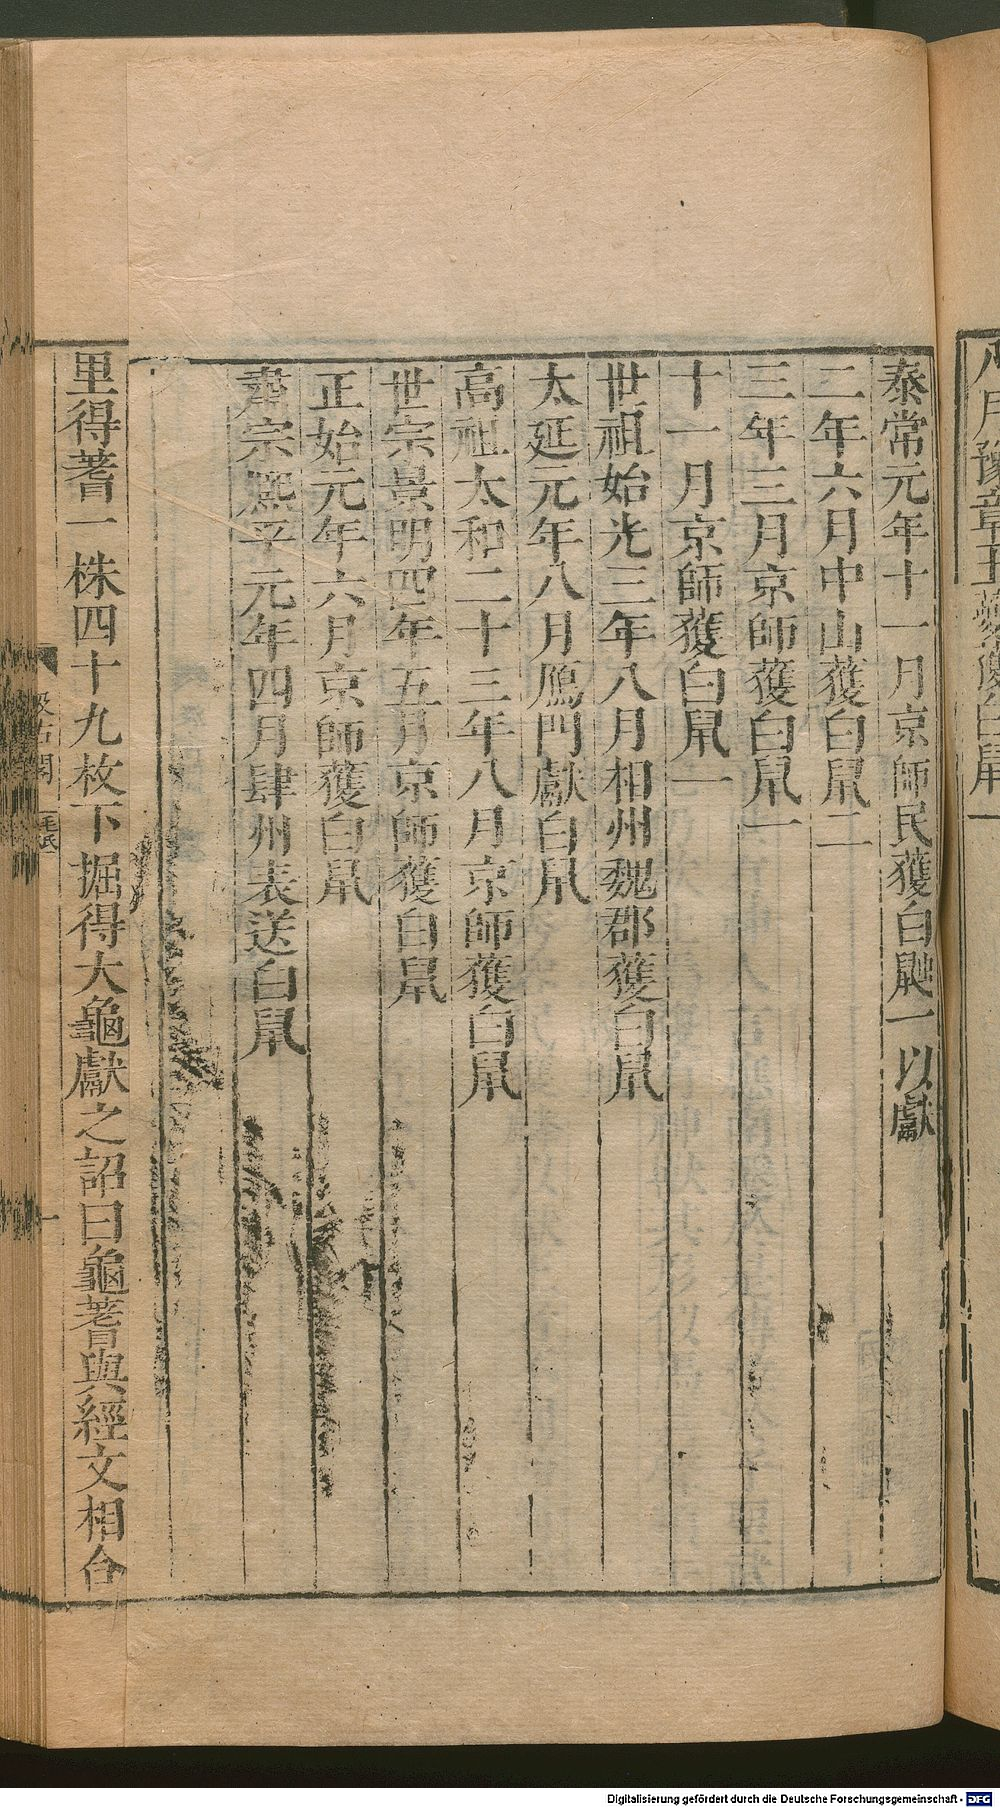 泰常元年十一月京師民獲白鼠一以獻
二年六月中山獲白鼠二
三年三月京師獲白鼠一
十一月京師獲白鼠一
世祖始光三年八月相州魏郡獲白鼠
太延元年八月鴈門獻白鼠
高祖太和二十三年八月京師獲白鼠
世宗景明四年五月京師獲白鼠
正始元年六月京師獲白鼠
肅宗熙平元年四月肆州表送白鼠
里得蓍一株四十九枚下掘得大龜獻之詔曰龜蓍與經文相合
汲古閣
Digitalisierung gefördert durch die Deutsche Forschungsgemeinschaft - DFG